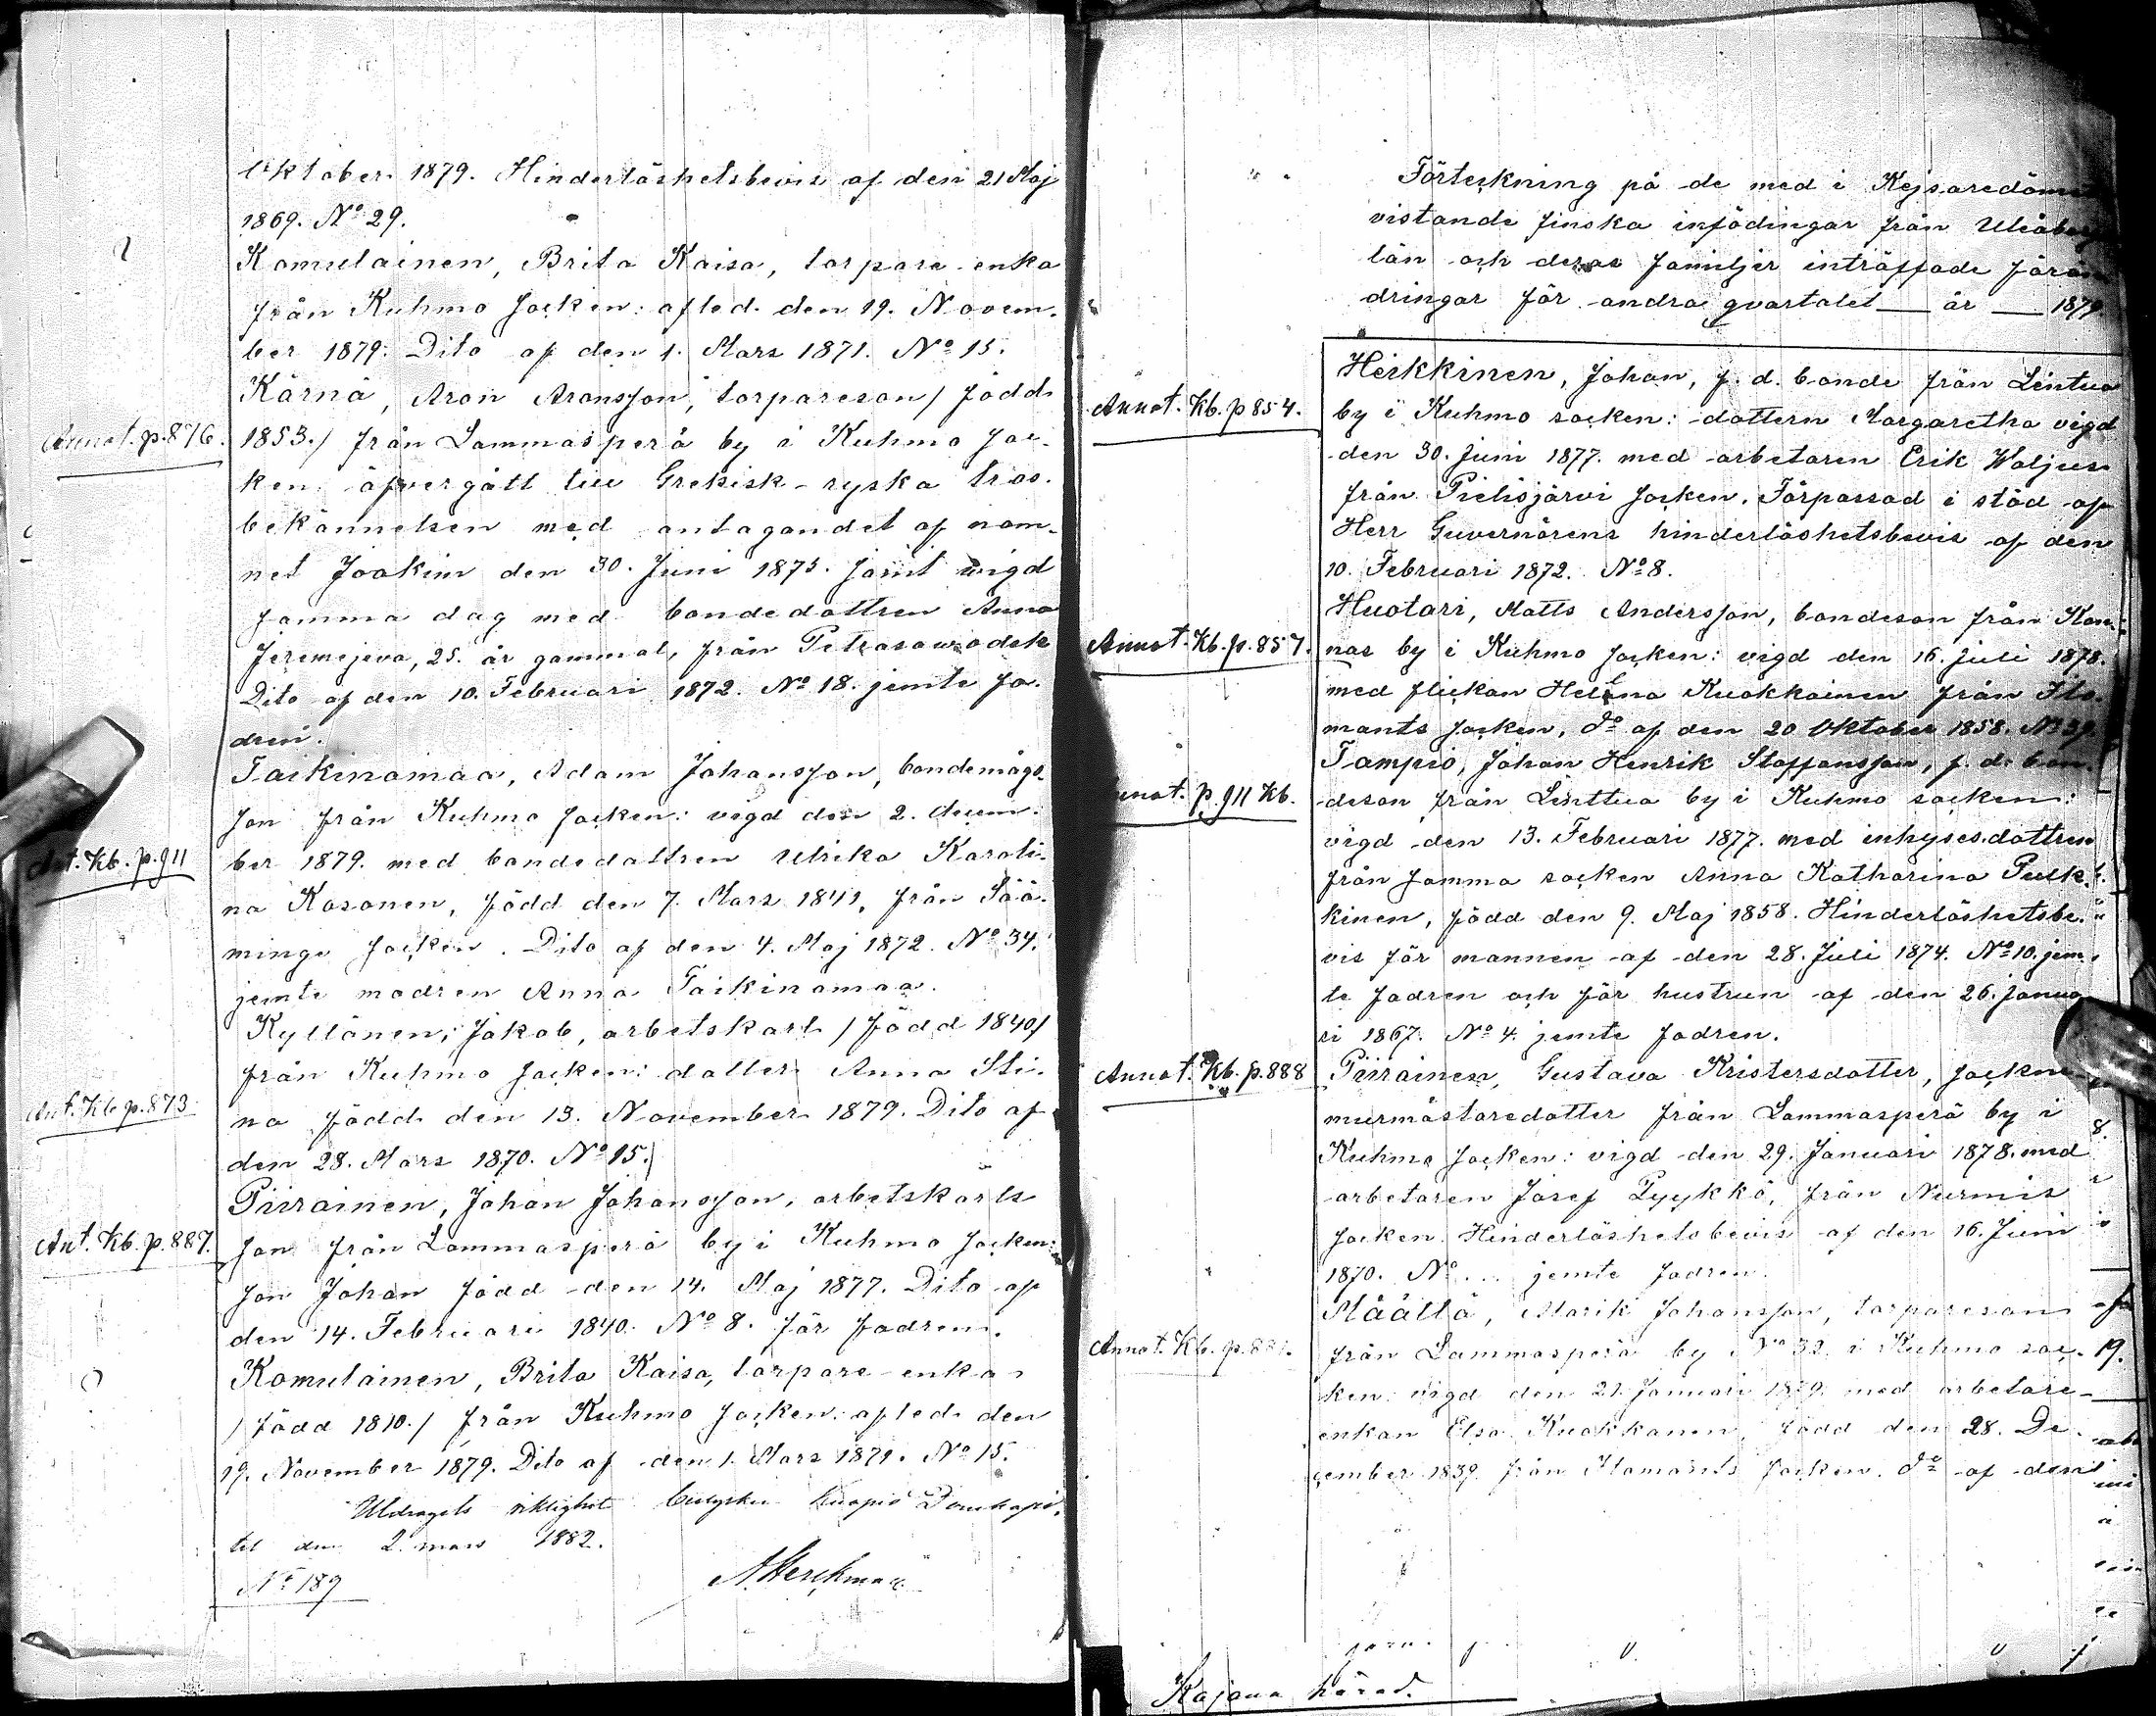 Oktober 1879. Hinderlöshetsbevis af den 21 Maj
1869. No 29.
Komulainen, Brita Kaisa, torpare enka
från Kuhmo socken: afled. den 19. Novem-
ber 1879. Dito af den 1. Mars 1871. No 15.
Kärnä, Aron Aronsson, torpareson / född
Annot. p. 876.
1853. / från Lammasperä by i Kuhmo soc-
ken: öfvergått till Grekisk-ryska tros-
bekännelsen med antagandet af nam-
net Joakim den 30. Juni 1875. samt vigd
samma dag med bondedottren Anna
Jeremejeva, 25. år gammal, från Petrasawodsk
Dito af den 10. Februari 1872. No 18. jemte fa-
dren.
Taikinamaa, Adam Johansson, bondemågs-
son från Kuhmo socken: vigd den 2.
Ant. Kb. p. 911
ber 1879. med bondedottren Ulrika Karoli-
na Kosonen, född den 7. Mars 1841, från Sää-
minge socken. Dito af den 4. Maj 1872. No 34.
jemte modren Anna Taikinamaa.
Kyllönen, Jakob, arbetskarl / född 1840 /
från Kuhmo socken: dotter Anna Sti-
Ant. Kb p. 873
na född den 13. November 1879. Dito af
den 28. Mars 1870. No 15.
Piirainen, Johan Johansson, arbetskarls
Ant. Kb. p. 887.
son från Lammasperä by i Kuhmo socken:
son Johan född den 14. Maj 1877. Dito af
den 14. Februari 1840. No 8. för fadren.
Komulainen, Brita Kaisa, torpare enka
/ född 1810. / från Kuhmo socken: afled. den
19. November 1879. Dito af den 1. Mars 1871. No 15.
Utdragets riktighet betygar Kuopio Domkapi-
tel den 2 mars 1882.
No 189
Förteckning på de med i Kejsaredömet
vistande finska infödingar från Uleåborgs
län och deras familjer inträffade förän-
dringar för andra qvartalet — år — 1879.
Heikkinen, Johan, f. d. bonde från Lentua
Annot. Kb. p 854.
by i Kuhmo socken: dottern Margaretha vigd
den 30. Juni 1877. med arbetaren Erik Waljus
från Pielisjärvi socken. Förpassad i stöd af
Herr Guvernörens hinderlöshetsbevis af den
10. Februari 1872. No 8.
Huotari, Matts Andersson, bondeson från Kan-
Annot. Kb. p. 857.
nas by i Kuhmo socken: vigd den 16. Juli 1878.
med flickan Helena Kuokkainen från Ilo-
mants socken, do af den 20 Oktober 1858. No 39.
Tampio, Johan Henrik Staffansson, f. d. bon-
Annot. p. 911 Kb.
deson från Lenttua by i Kuhmo socken:
vigd den 13. Februari 1877. med inhysesdottren
från samma socken Anna Katharina Pulk-
kinen, född den 9. Maj 1858. Hinderlöshetsbe-
vis för mannen af den 28. Juli 1874. No 10. jem-
te fadren och för hustrun af den 26. Janua-
ri 1867. No 4. jemte fadren.
Annot. Kb. p. 888
Piirainen, Gustava Kristersdotter, socken-
murmästaredotter från Lammasperä by i
Kuhmo socken: vigd den 29. Januari 1878. med
arbetaren Josef Pyykkö, från Nurmis
socken. Hinderlöshetsbevis af den 16. Juni
1870. No ... jemte fadren.
Määttä, Johansson, torpareson
Annot. Kb. p.
från Lammasperä by No 32. i Kuhmo soc-
ken: vigd den 21. Januari 1879. med arbetare-
enkan Elsa Kuokkanen, född den 28. De-
cember 1839. från Ilomants socken. do af den
Kajana härad.